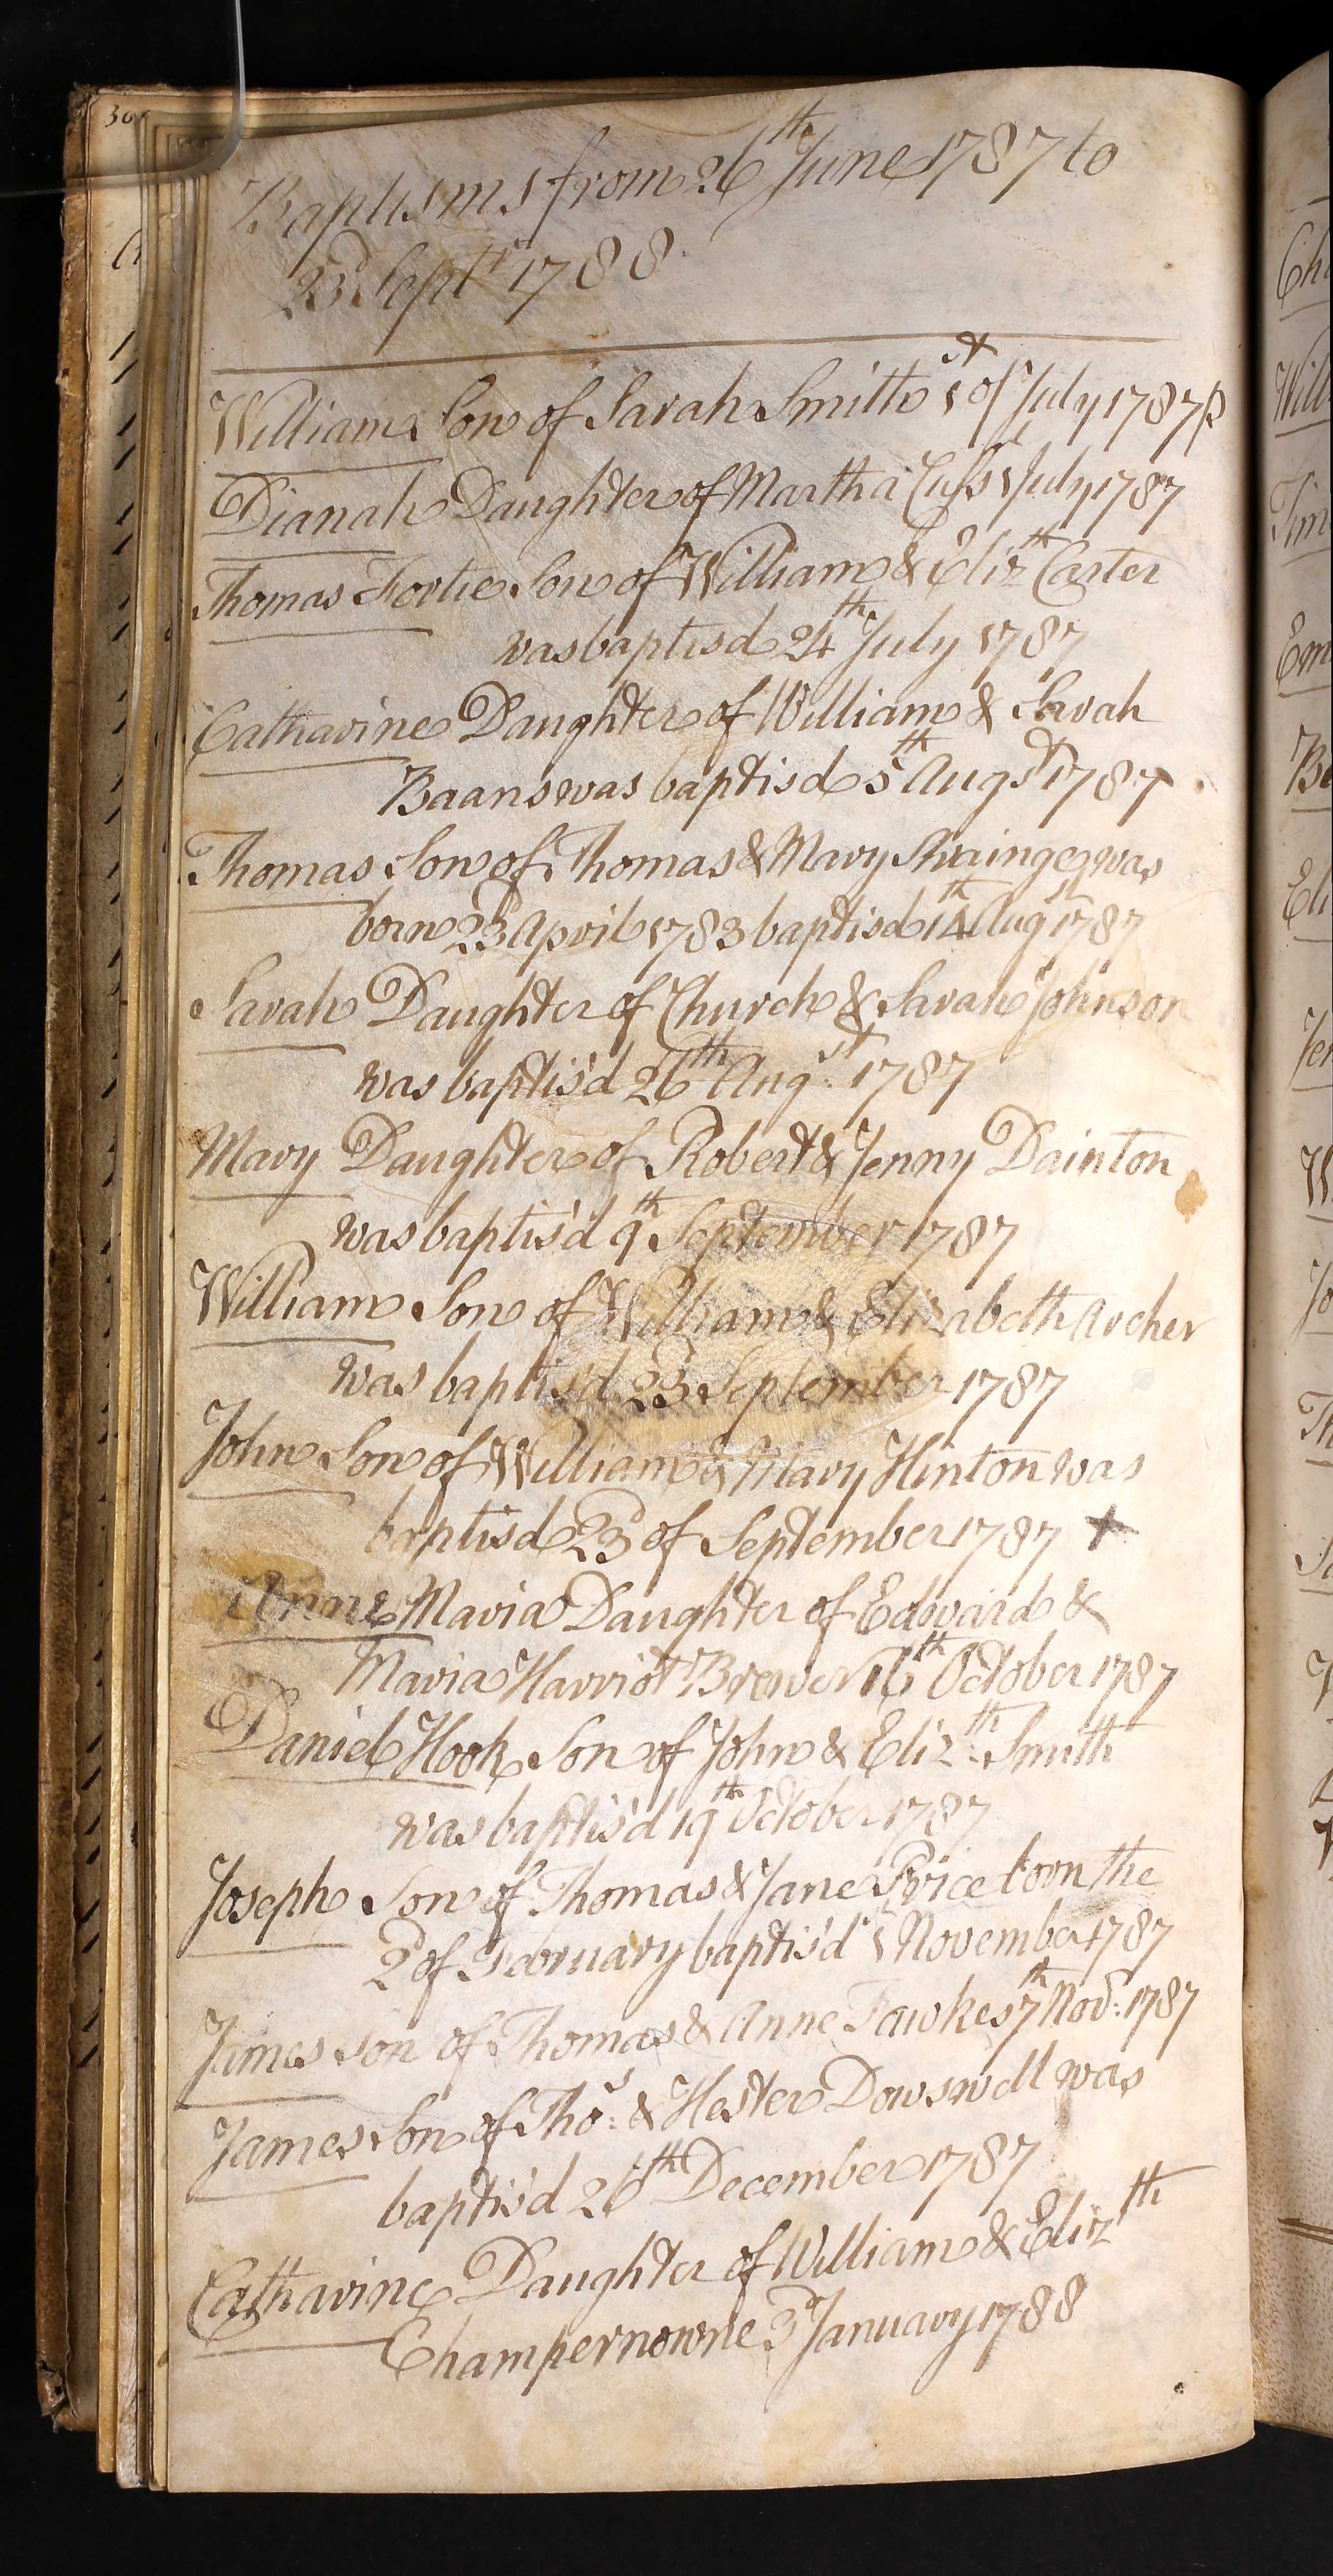 30
Baptisms from 26th June 1787 to
23d Septr 1788
William Son of Sarah Smith 1st of July 1787 p
Dianah Daughter of Martha Cuss 1 July 1787
Thomas Fortie Son of William & Elizth Carter
was baptisd 24th July 1787
Catharine Daughter of William & Sarah
Baans was baptisd 5th Augst 1787
Thomas Son of Thomas & Mary Swainge was
born 23d April 1783 baptisd 14th Augst 1787
Sarah Daughter of Church & Sarah Johnson
was baptis'd 26th Augst: 1787
Mary Daughter of Robert & Jenny Dainton
was baptis'd 9th September 1787
William Son of William & Elizabeth Archer
was baptis'd 23d September 1787
John Son of William & Mary Hinton was
baptisd 23d of September 1787 +
Anne Maria Daughter of Edward &
Maria Harriot Brewer 16th October 1787
Daniel Hook Son of John & Elizth: Smith
was baptis'd 19th October 1787
Joseph Son of Thomas & Jane Price born the
2d of February baptis'd 1 November 1787
James son of Thomas & Anne Fawkes 7th Novr: 1787
James Son of Thos: & Hester Dowswell was
baptis'd 26th December 1787
Catharine Daughter of William & Elizth
Champernowne 3d January 1788